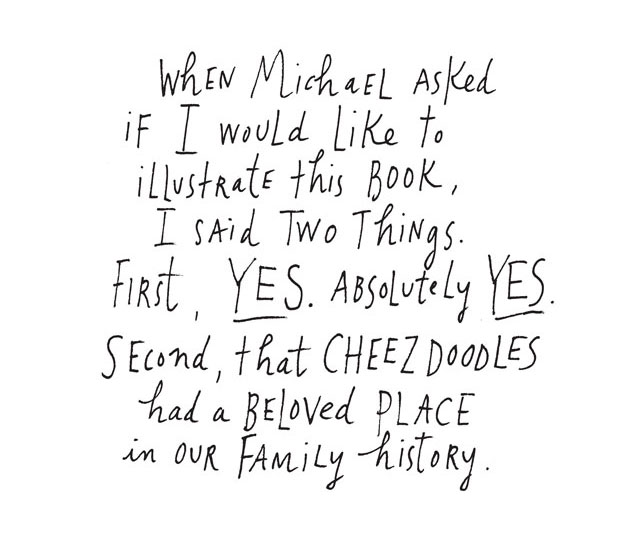 WhEN MichaEL Asked
iF I would Like to
iLLustRatE this BOOK,
I SAid TWO ThiNgs.
FiRSt, YES. ABSOLutely YES.
SEcond, that CHEEZ DOODLES
had a BELOVEd PLACE
in OUR FAMiLy history.